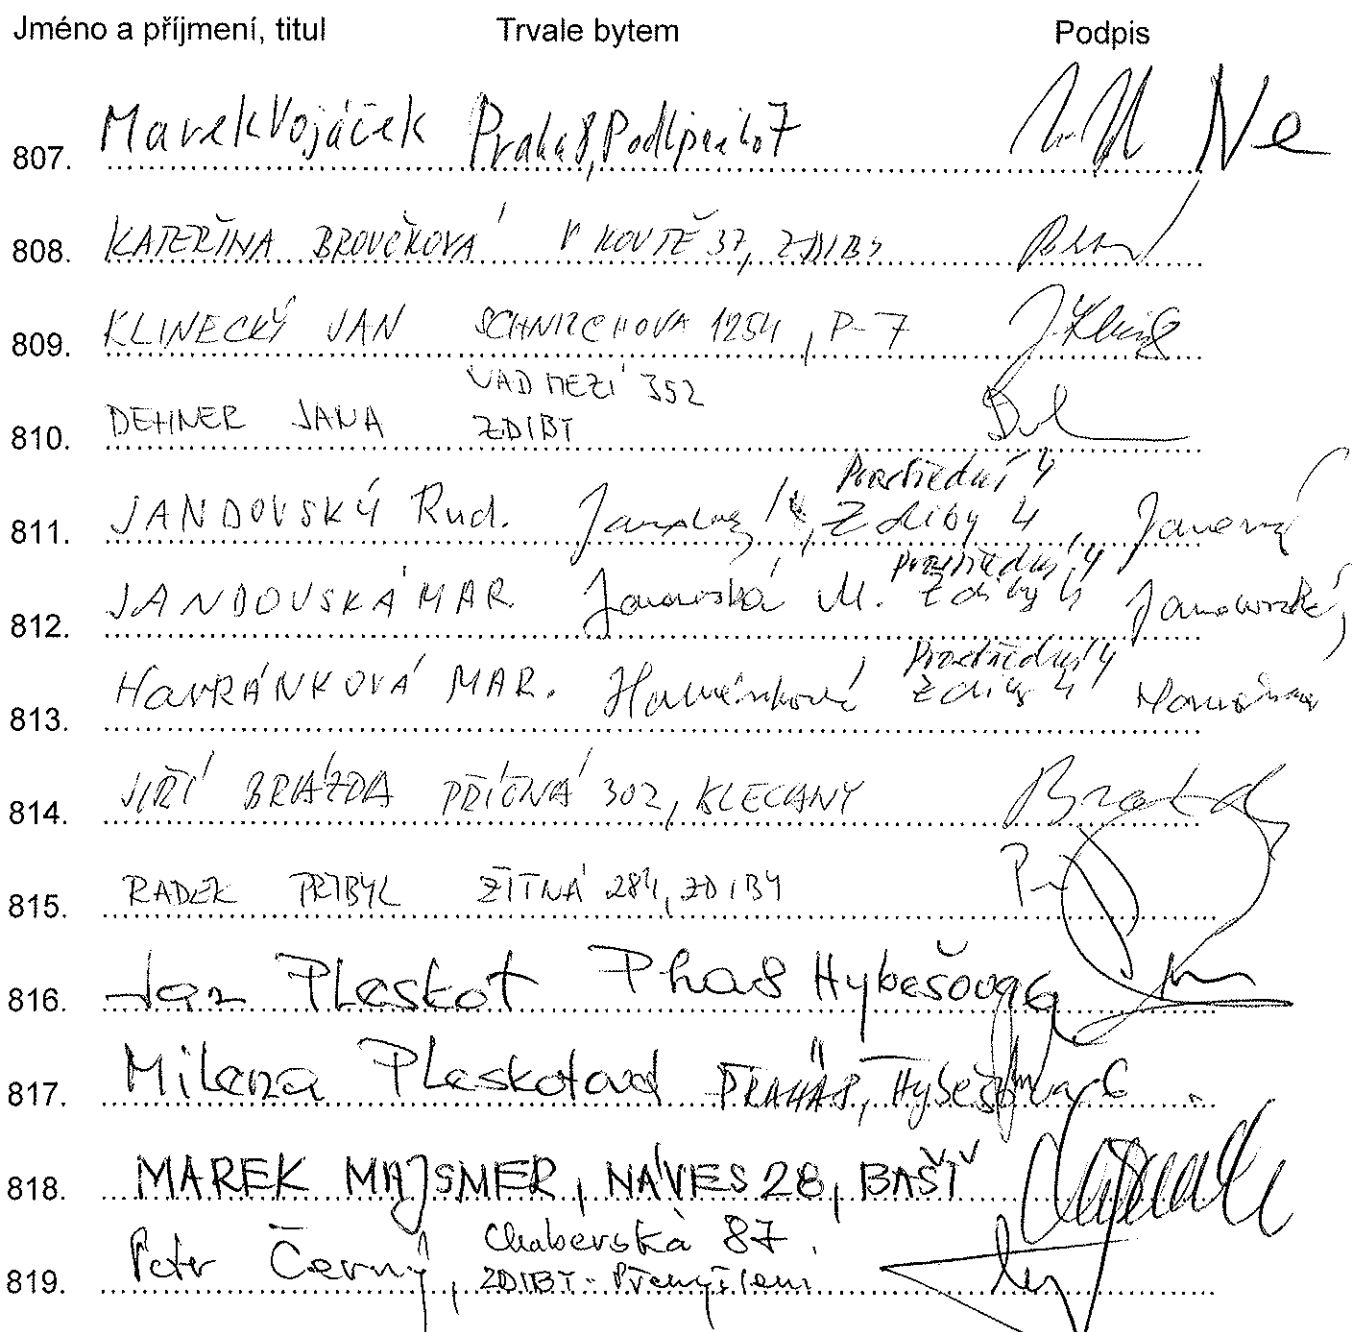 Jméno a příjmení, titul Trvale bytem Podpis
807. Marek Vojáček Praha 8, Podlipného 7 Ne
808. KATEŘINA BROUČKOVÁ V KOUTĚ 37, ZDIBY
809. KLINECKÝ JAN SCHNIRCHOVA 1254, P-7
810. DEHNER JANA NAD MEZÍ 352
ZDIBY
Prostřední 4
811. JANDOVSKÝ Rud. Zdiby 4,
Prostřední 4
812. JANDOVSKÁ MAR. M. Zdiby 4
Prostřední 4
813. HavRÁNKOVÁ MAR. Havránková Zdiby 4
814. JIŘÍ BRÁZDA PŘÍČNÁ 302, KLECANY
815. RADEK PŘIBYL ŽITNÁ 284, ZDIBY
816. Jan Pleskot Pha 8 Hybešova 6
817. Milena Pleskotová PRAHA 8, Hybešova 6
818. MAREK MAJSMER, NÁVES 28, BAŠŤ
819. Petr Černý, Chaberská 87,
ZDIBY - Přemyšlení